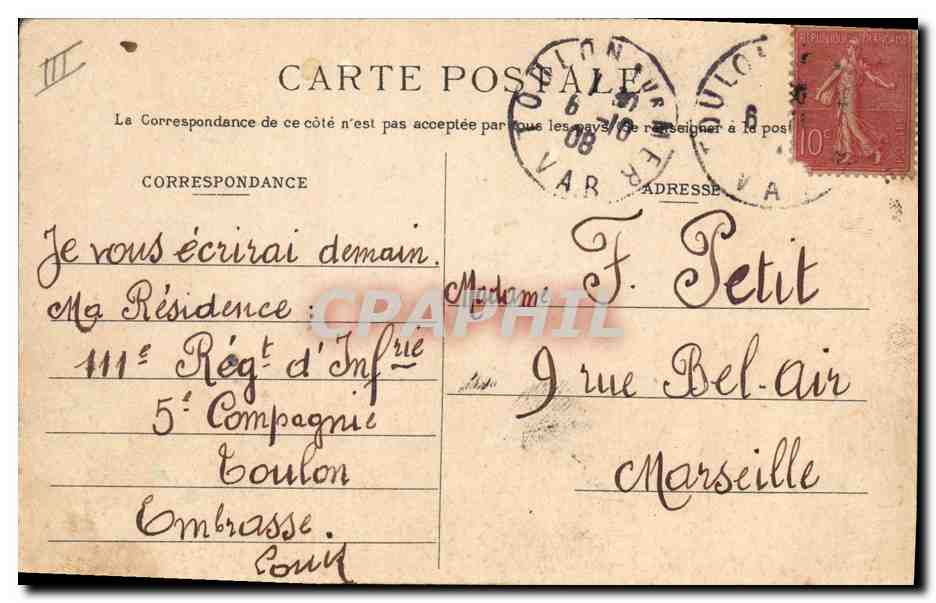 III
CARTE POSTALE
La Correspondance de ce côté n'est pas acceptée par tous les pays (Se renseigner à la poste
TOULON SUR MER
7
6 -10
08
VAR
TOULO
6
VA
REPUBLIQUE FRANÇAISE
10c
CORRESPONDANCE
Je vous écrirai demain.
Ma Résidence :
111e Régt d'Infrie
5e Compagnie
Toulon
Embrasse.
ADRESSE
Madame F. Petit
9 rue Bel-Air
Marseille
CPAPHIL